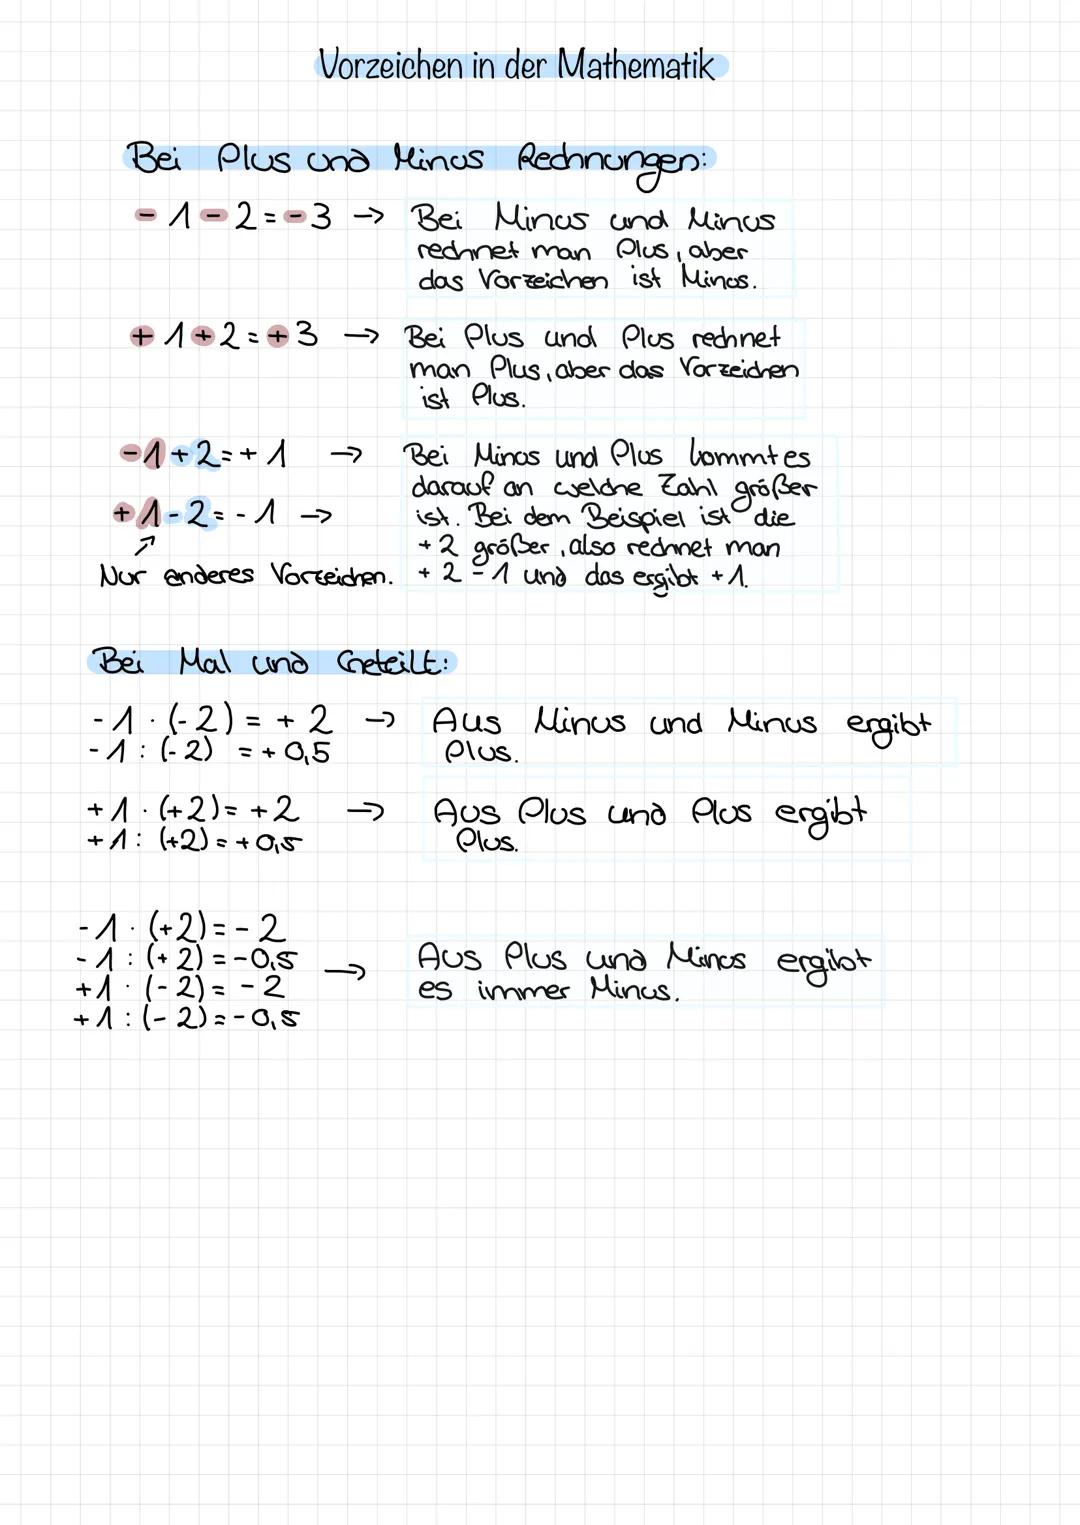 Vorzeichen in der Mathematik
Bei Plus und Minus Rechnungen:
- 1 - 2 = - 3 → Bei Minus und Minus
rechnet man Plus, aber
das Vorzeichen ist Minus.
+ 1 + 2 = + 3 → Bei Plus und Plus rechnet
man Plus, aber das Vorzeichen
ist Plus.
- 1 + 2 = + 1 → Bei Minus und Plus kommt es
darauf an welche Zahl größer
+ 1 - 2 = - 1 → ist. Bei dem Beispiel ist die
+ 2 größer, also rechnet man
Nur anderes Vorzeichen. + 2 - 1 und das ergibt + 1.
Bei Mal und Geteilt:
- 1 · (- 2) = + 2 → Aus Minus und Minus ergibt
- 1 : (- 2) = + 0,5 Plus.
+ 1 · (+ 2) = + 2 → Aus Plus und Plus ergibt
+ 1 : (+ 2) = + 0,5 Plus.
- 1 · (+ 2) = - 2
- 1 : (+ 2) = - 0,5 → Aus Plus und Minus ergibt
+ 1 · (- 2) = - 2 es immer Minus.
+ 1 : (- 2) = - 0,5